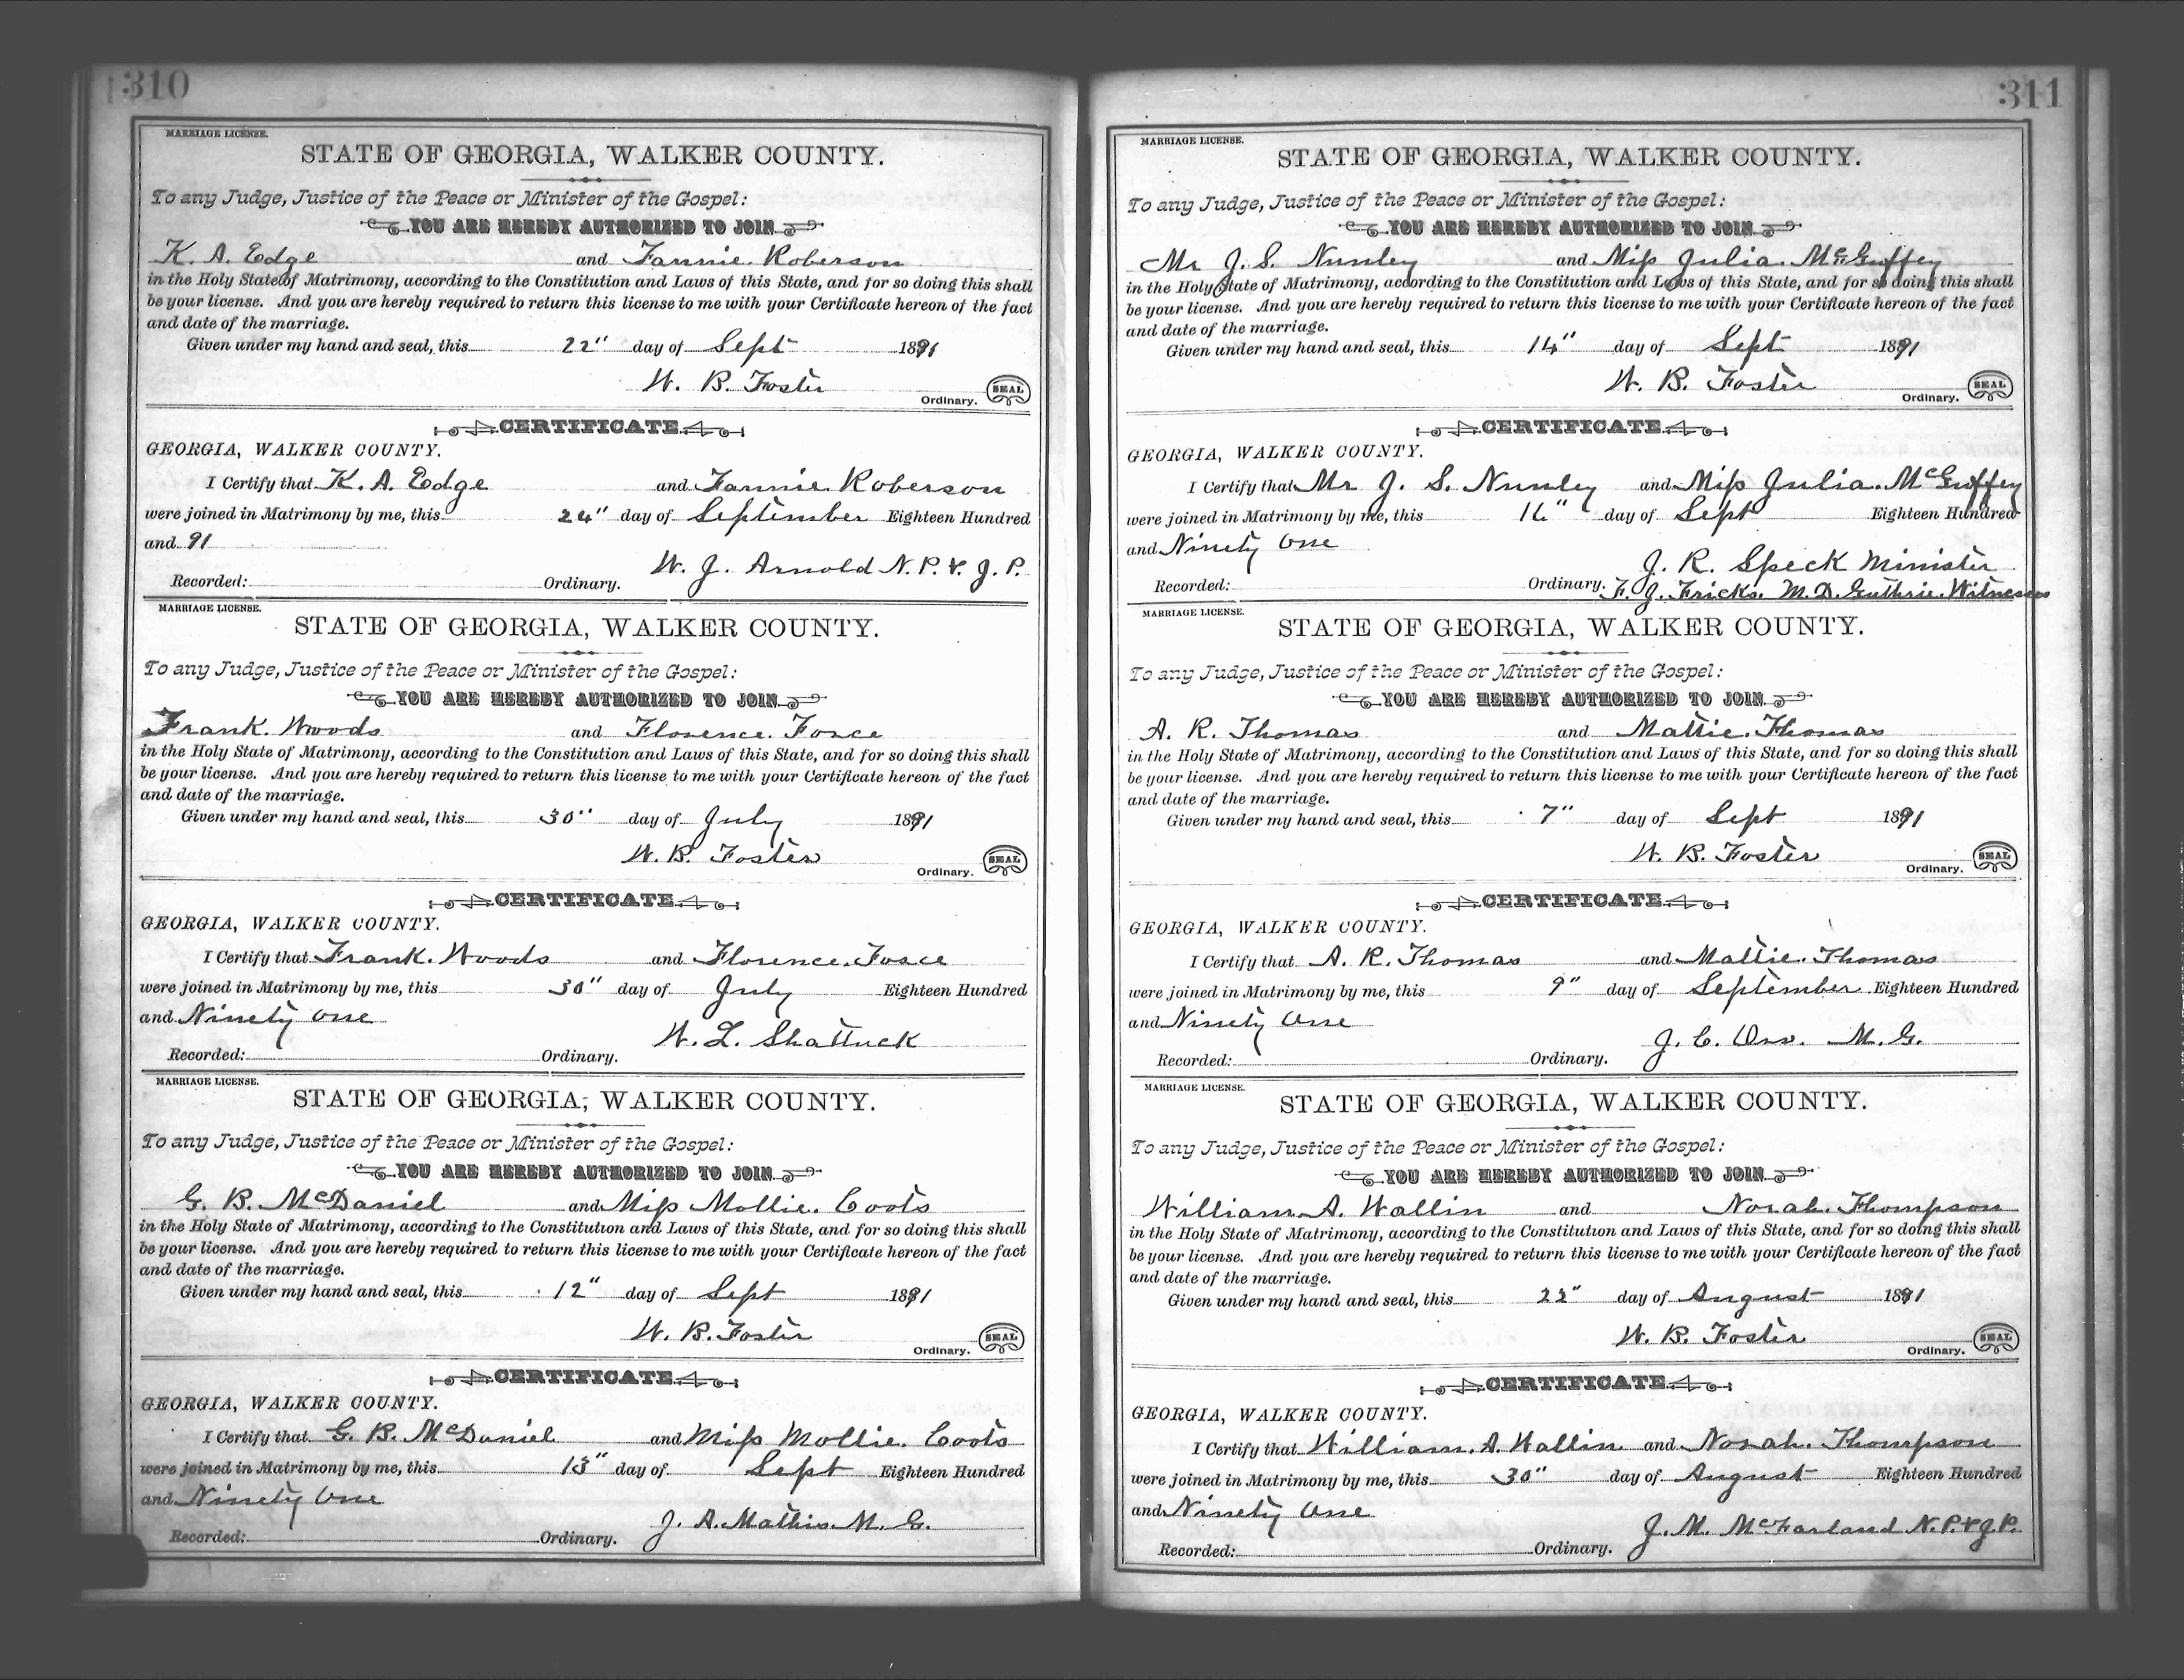 310
MARRIAGE LICENSE.
STATE OF GEORGIA, WALKER COUNTY.
To any Judge, Justice of the Peace or Minister of the Gospel:
YOU ARE HEREBY AUTHORIZED TO JOIN
K. A. Edge and Fannie Roberson
in the Holy State of Matrimony, according to the Constitution and Laws of this State, and for so doing this shall
be your license. And you are hereby required to return this license to me with your Certificate hereon of the fact
and date of the marriage.
Given under my hand and seal, this 22" day of Sept 1891
W. B. Foster
Ordinary. SEAL
CERTIFICATE
GEORGIA, WALKER COUNTY.
I Certify that K. A. Edge and Fannie Roberson
were joined in Matrimony by me, this 24" day of September Eighteen Hundred
and 91
W. J. Arnold N. P. & J. P.
Recorded: Ordinary.
MARRIAGE LICENSE.
STATE OF GEORGIA, WALKER COUNTY.
To any Judge, Justice of the Peace or Minister of the Gospel:
YOU ARE HEREBY AUTHORIZED TO JOIN
Frank Woods and Florence
in the Holy State of Matrimony, according to the Constitution and Laws of this State, and for so doing this shall
be your license. And you are hereby required to return this license to me with your Certificate hereon of the fact
and date of the marriage.
Given under my hand and seal, this 30" day of July 1891
W. B. Foster
Ordinary. SEAL
CERTIFICATE
GEORGIA, WALKER COUNTY.
I Certify that Frank Woods and Florence
were joined in Matrimony by me, this 30" day of July Eighteen Hundred
and Ninety One
W. L. Shattuck
Recorded: Ordinary.
MARRIAGE LICENSE.
STATE OF GEORGIA, WALKER COUNTY.
To any Judge, Justice of the Peace or Minister of the Gospel:
YOU ARE HEREBY AUTHORIZED TO JOIN
G. B. McDaniel and Miss Mollie Coots
in the Holy State of Matrimony, according to the Constitution and Laws of this State, and for so doing this shall
be your license. And you are hereby required to return this license to me with your Certificate hereon of the fact
and date of the marriage.
Given under my hand and seal, this 12" day of Sept 1891
W. B. Foster
Ordinary. SEAL
CERTIFICATE
GEORGIA, WALKER COUNTY.
I Certify that G. B. McDaniel and Miss Mollie Coots
were joined in Matrimony by me, this 13" day of Sept Eighteen Hundred
and Ninety One
J. A. Mathis M. G.
Recorded: Ordinary.
311
MARRIAGE LICENSE.
STATE OF GEORGIA, WALKER COUNTY.
To any Judge, Justice of the Peace or Minister of the Gospel:
YOU ARE HEREBY AUTHORIZED TO JOIN
Mr J. S. Nunley and Miss Julia McGuffey
in the Holy State of Matrimony, according to the Constitution and Laws of this State, and for so doing this shall
be your license. And you are hereby required to return this license to me with your Certificate hereon of the fact
and date of the marriage.
Given under my hand and seal, this 14" day of Sept 1891
W. B. Foster
Ordinary. SEAL
CERTIFICATE
GEORGIA, WALKER COUNTY.
I Certify that Mr J. S. Nunley and Miss Julia McGuffey
were joined in Matrimony by me, this day of Sept Eighteen Hundred
and Ninety One
J. R. Speck Minister
Recorded: Ordinary. F. J. Fricks. M. D. Guthrie. Witnesses
MARRIAGE LICENSE.
STATE OF GEORGIA, WALKER COUNTY.
To any Judge, Justice of the Peace or Minister of the Gospel:
YOU ARE HEREBY AUTHORIZED TO JOIN
A. R. Thomas and Mattie Thomas
in the Holy State of Matrimony, according to the Constitution and Laws of this State, and for so doing this shall
be your license. And you are hereby required to return this license to me with your Certificate hereon of the fact
and date of the marriage.
Given under my hand and seal, this 7" day of Sept 1891
W. B. Foster
Ordinary. SEAL
CERTIFICATE
GEORGIA, WALKER COUNTY.
I Certify that A. R. Thomas and Mattie Thomas
were joined in Matrimony by me, this 9" day of September Eighteen Hundred
and Ninety One
J. C. Orr. M. G.
Recorded: Ordinary.
MARRIAGE LICENSE.
STATE OF GEORGIA, WALKER COUNTY.
To any Judge, Justice of the Peace or Minister of the Gospel:
YOU ARE HEREBY AUTHORIZED TO JOIN
William A. Wallin and Norah Thompson
in the Holy State of Matrimony, according to the Constitution and Laws of this State, and for so doing this shall
be your license. And you are hereby required to return this license to me with your Certificate hereon of the fact
and date of the marriage.
Given under my hand and seal, this day of August 1891
W. B. Foster
Ordinary. SEAL
CERTIFICATE
GEORGIA, WALKER COUNTY.
I Certify that William A. Wallin and Norah Thompson
were joined in Matrimony by me, this 30" day of August Eighteen Hundred
and Ninety One
J. M. McFarland N. P. & J. P.
Recorded: Ordinary.